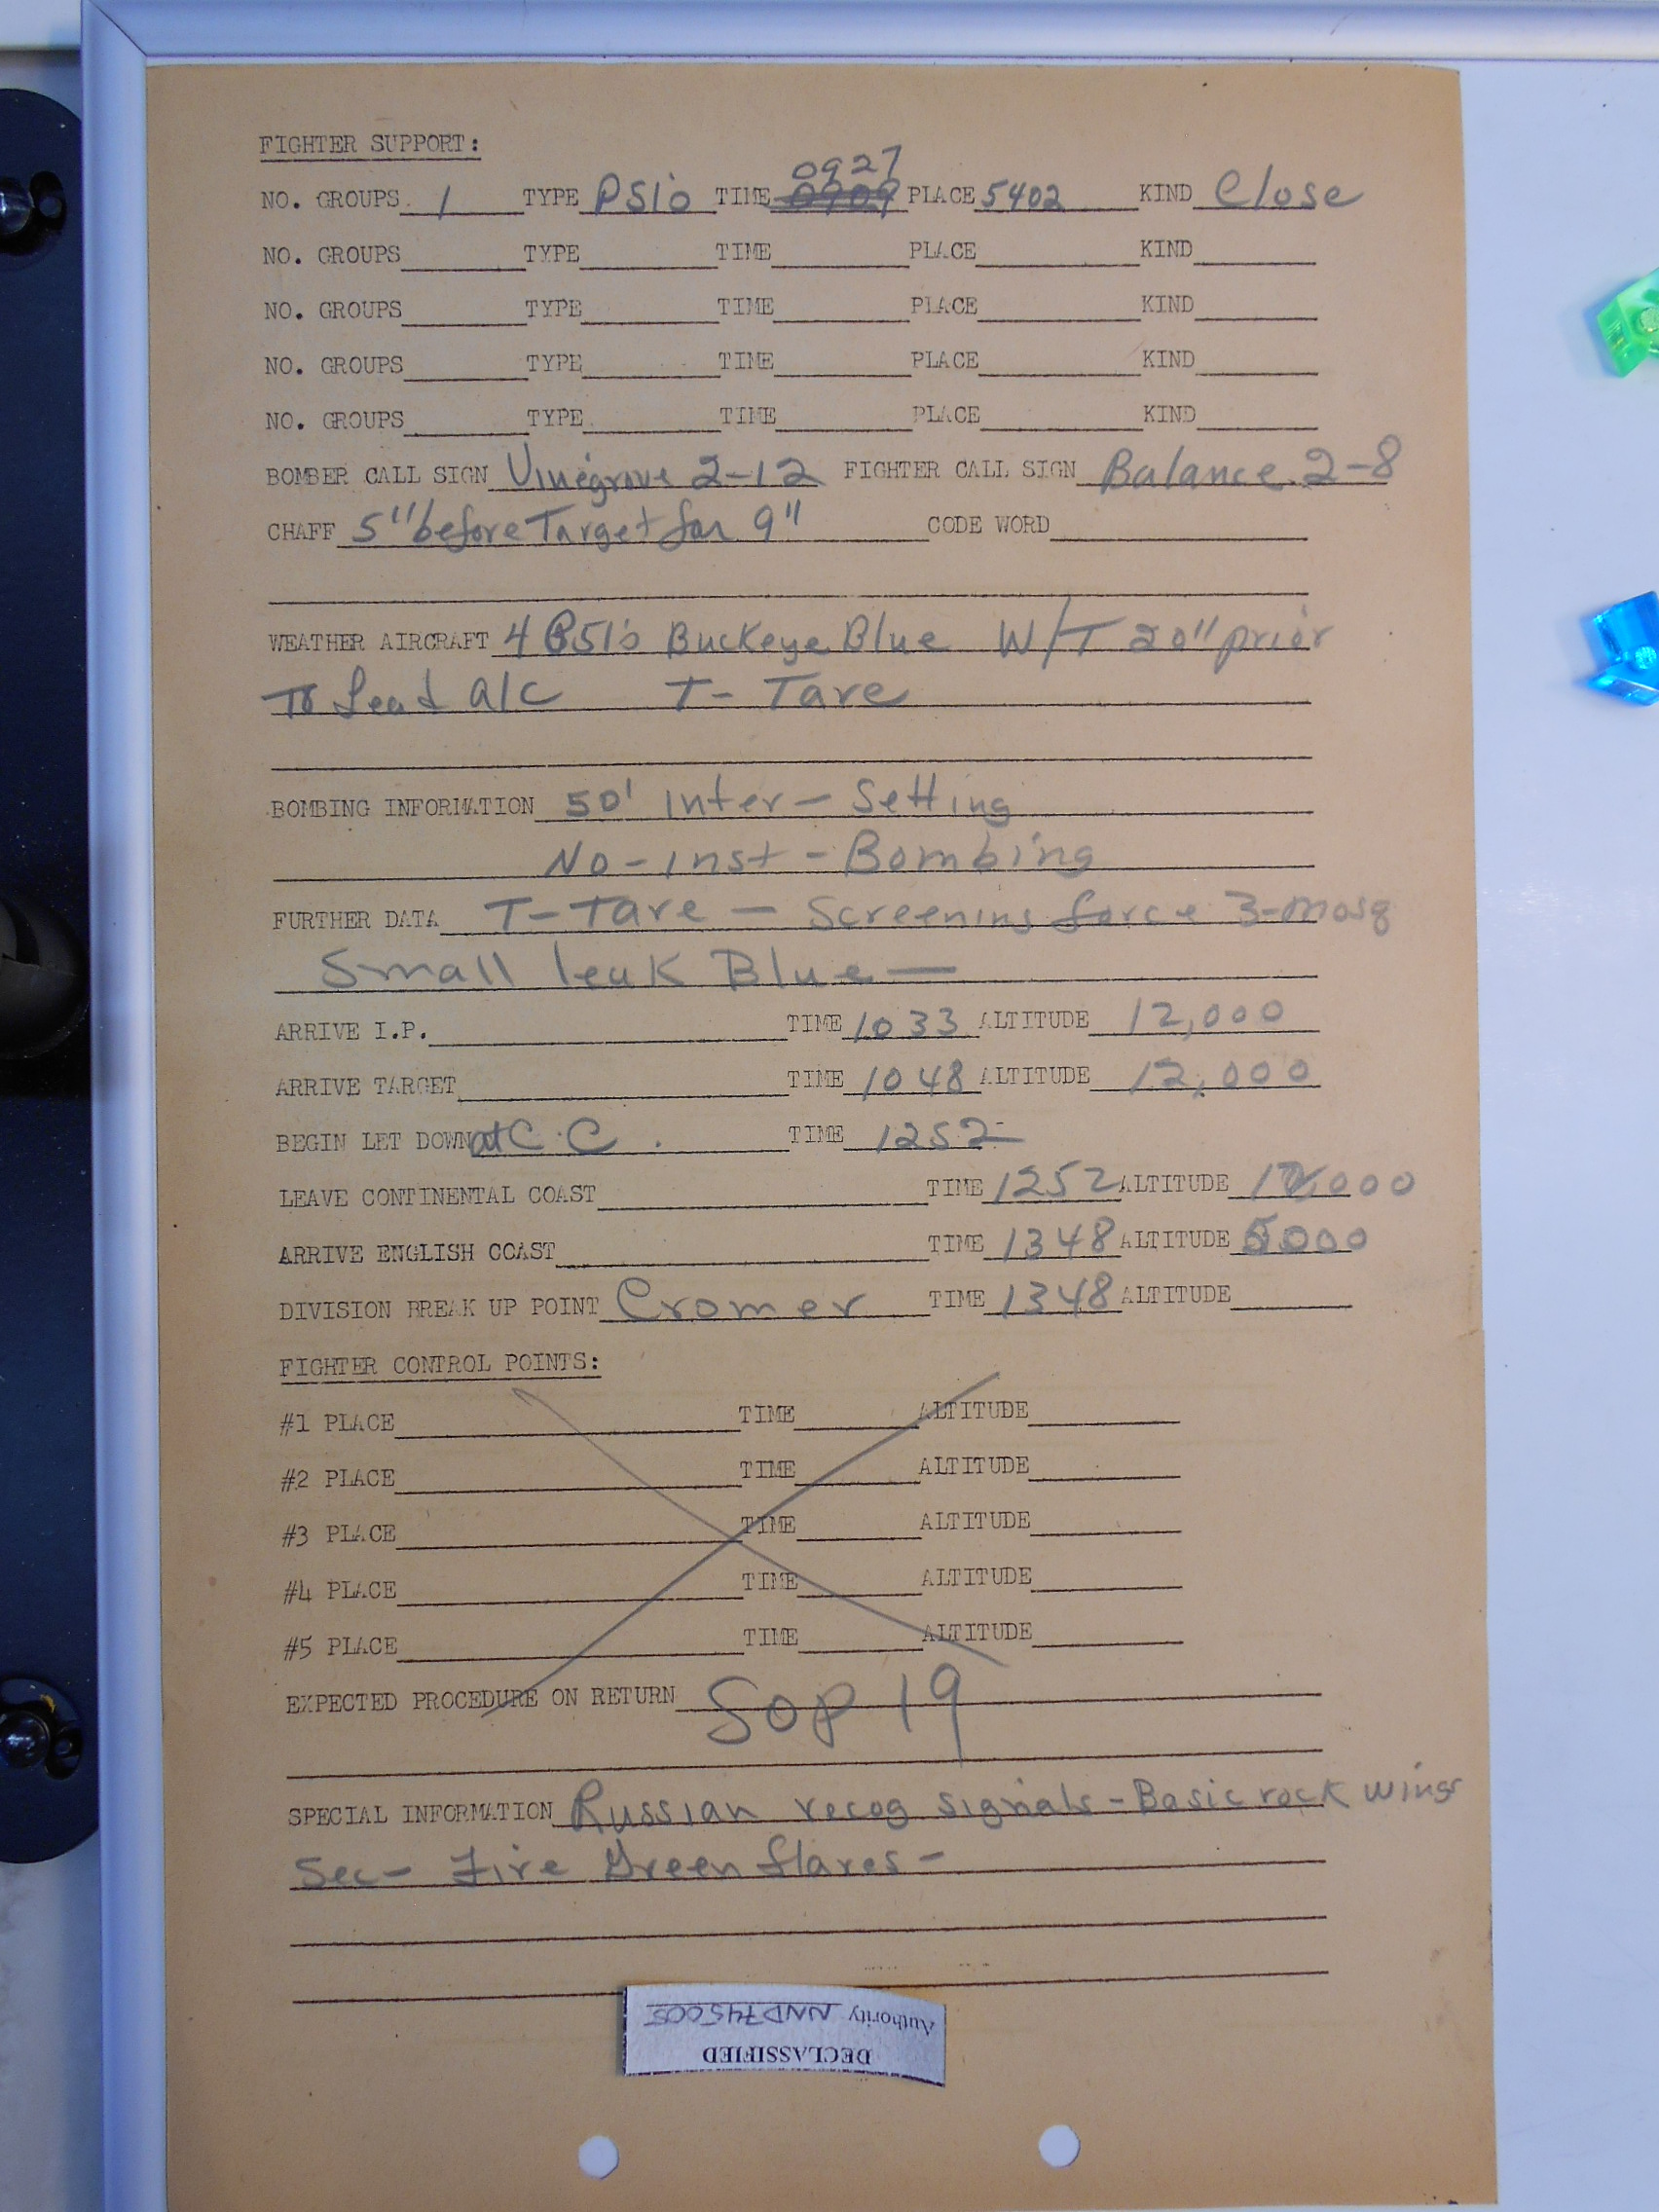 FIGHTER SUPPORT:
0927
NO. GROUPS 1 TYPE P51's TIME 0909 PLACE 5402 KIND Close
NO. GROUPS TYPE TIME PLACE KIND
NO. GROUPS TYPE TIME PLACE KIND
NO. GROUPS TYPE TIME PLACE KIND
NO. GROUPS TYPE TIME PLACE KIND
BOMBER CALL SIGN Vinegrove 2-12 FIGHTER CALL SIGN Balance 2-8
CHAFF 5" before Target for 9" CODE WORD
WEATHER AIRCRAFT 4 P51's Buckeye Blue W/T 20" prior
To Lead a/c T- Tare
BOMBING INFORMATION 50' Inter- Setting
No-inst - Bombing
FURTHER DATA T- Tare - Screening force 3-mosq
Small leak Blue -
ARRIVE I.P. TIME 1033 ALTITUDE 12,000
ARRIVE TARGET TIME 1048 ALTITUDE 12,000
BEGIN LET DOWN at C.C. TIME 1252
LEAVE CONTINENTAL COAST TIME 1252 ALTITUDE 12,000
ARRIVE ENGLISH COAST TIME 1348 ALTITUDE 5000
DIVISION BREAK UP POINT Cromer TIME 1348 ALTITUDE
FIGHTER CONTROL POINTS:
#1 PLACE TIME ALTITUDE
#2 PLACE TIME ALTITUDE
#3 PLACE TIME ALTITUDE
#4 PLACE TIME ALTITUDE
#5 PLACE TIME ALTITUDE
EXPECTED PROCEDURE ON RETURN Sop 19
SPECIAL INFORMATION Russian recog signals - Basic rock wings
Sec- Fire Green flares -
DECLASSIFIED
Authority NND745005